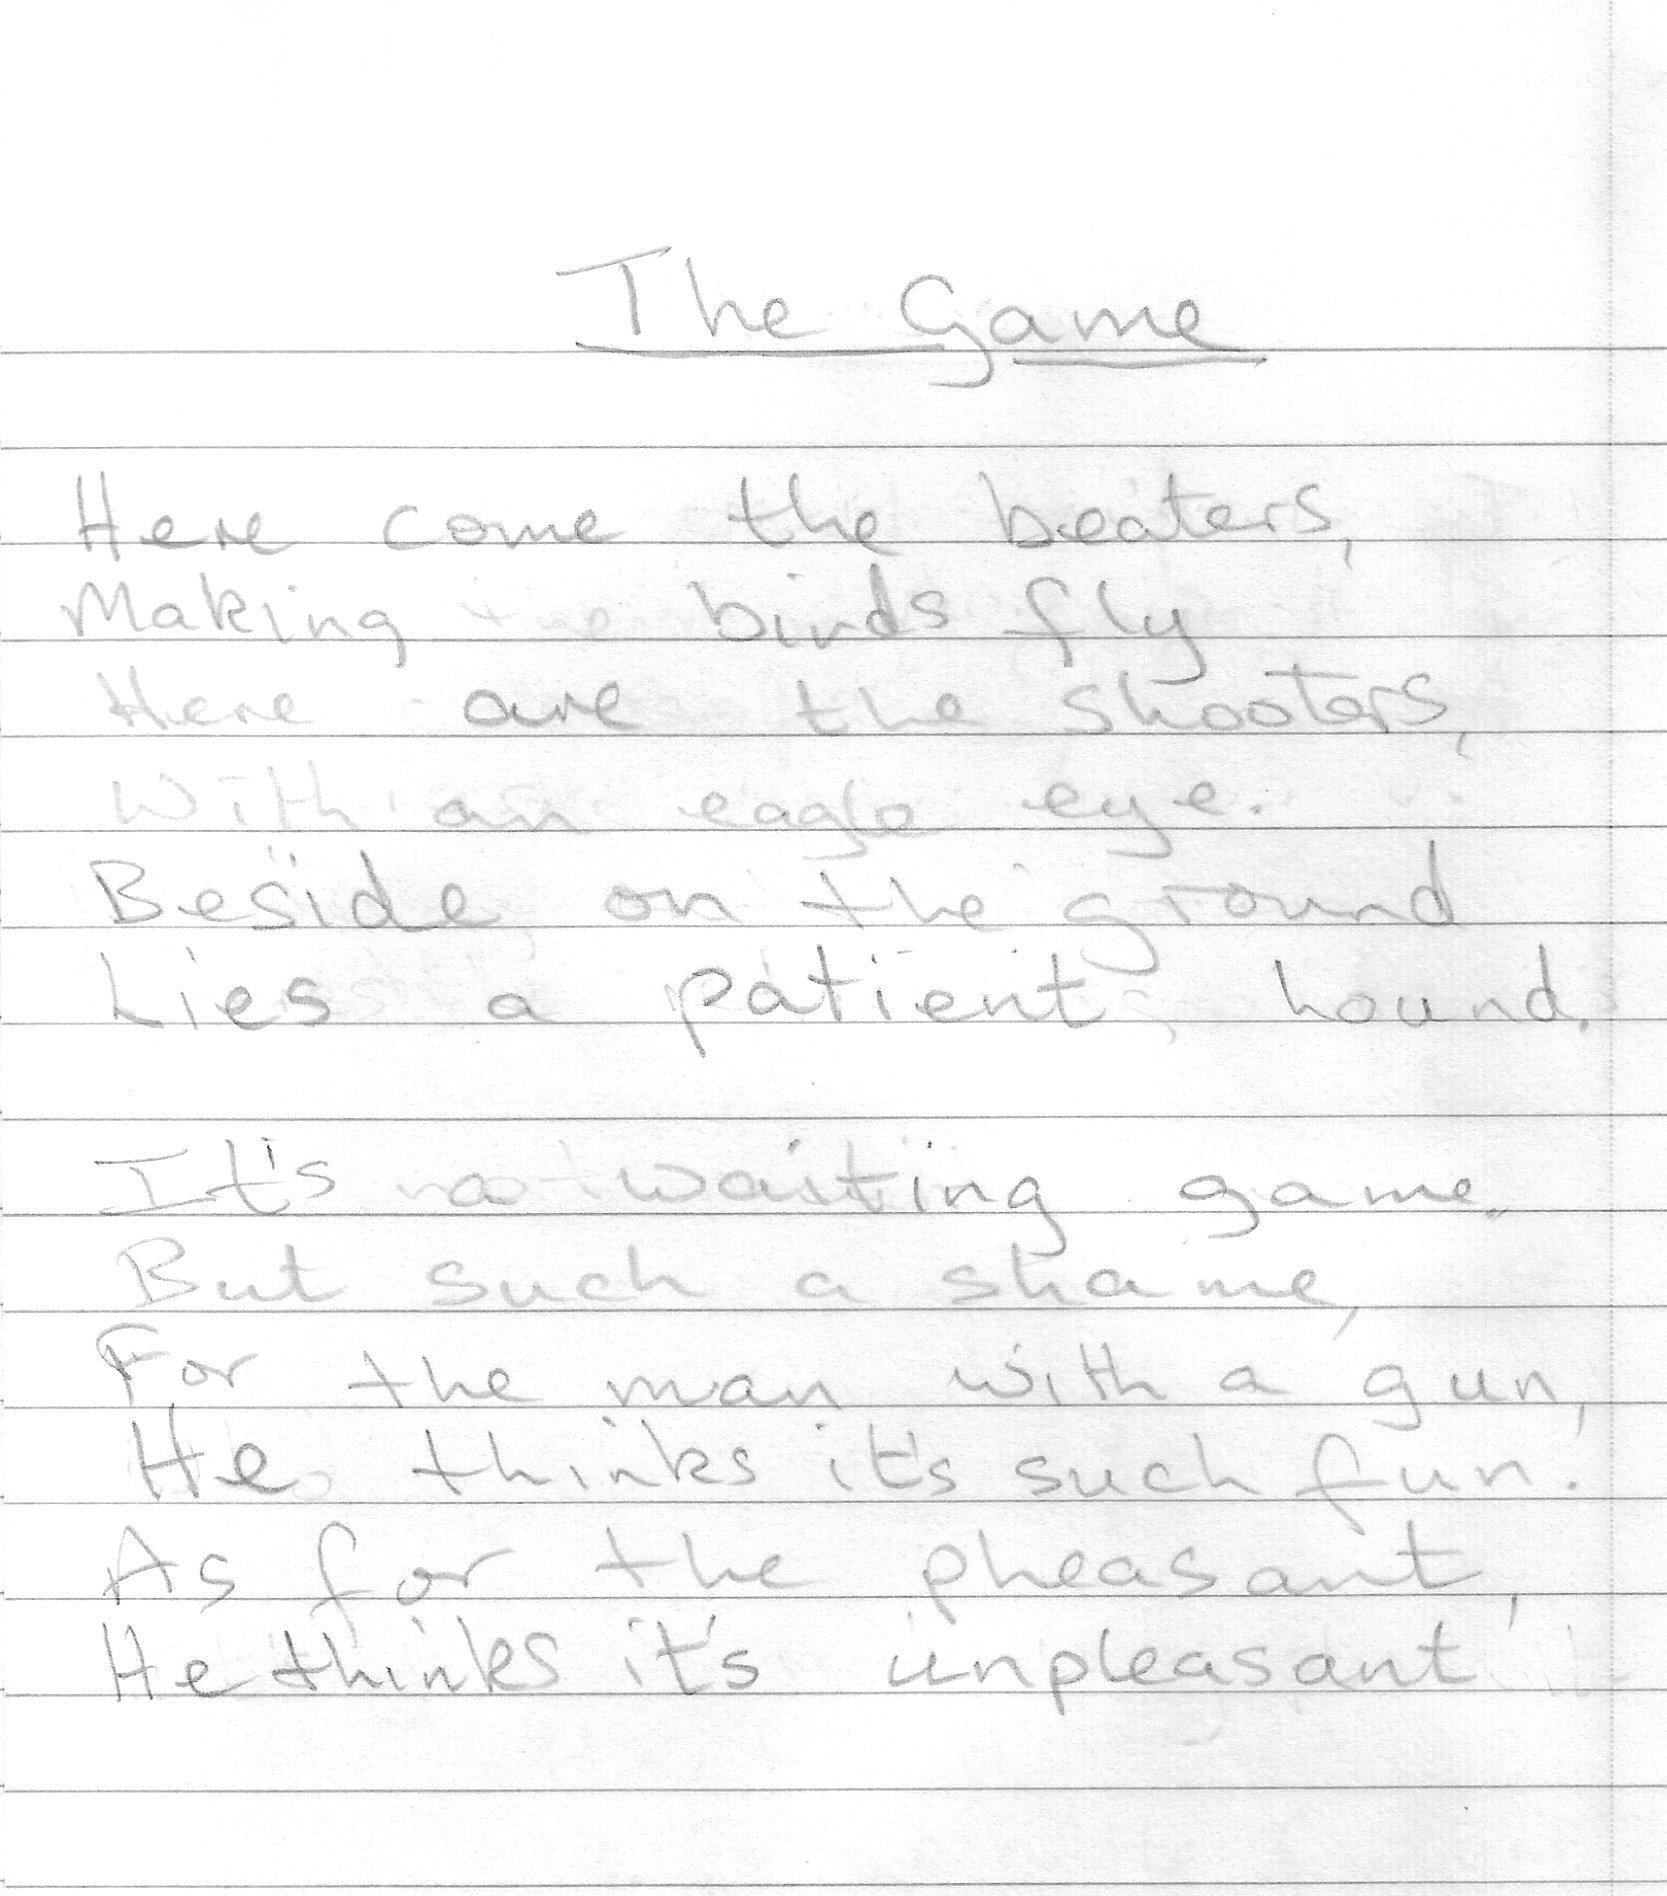 The Game
Here come the beaters,
Making the birds fly
Here are the shooters,
With an eagle eye.
Beside on the ground
Lies a patient hound.
It's a waiting game.
But such a shame,
For the man with a gun,
He thinks it's such fun.
As for the pheasant,
He thinks it's unpleasant